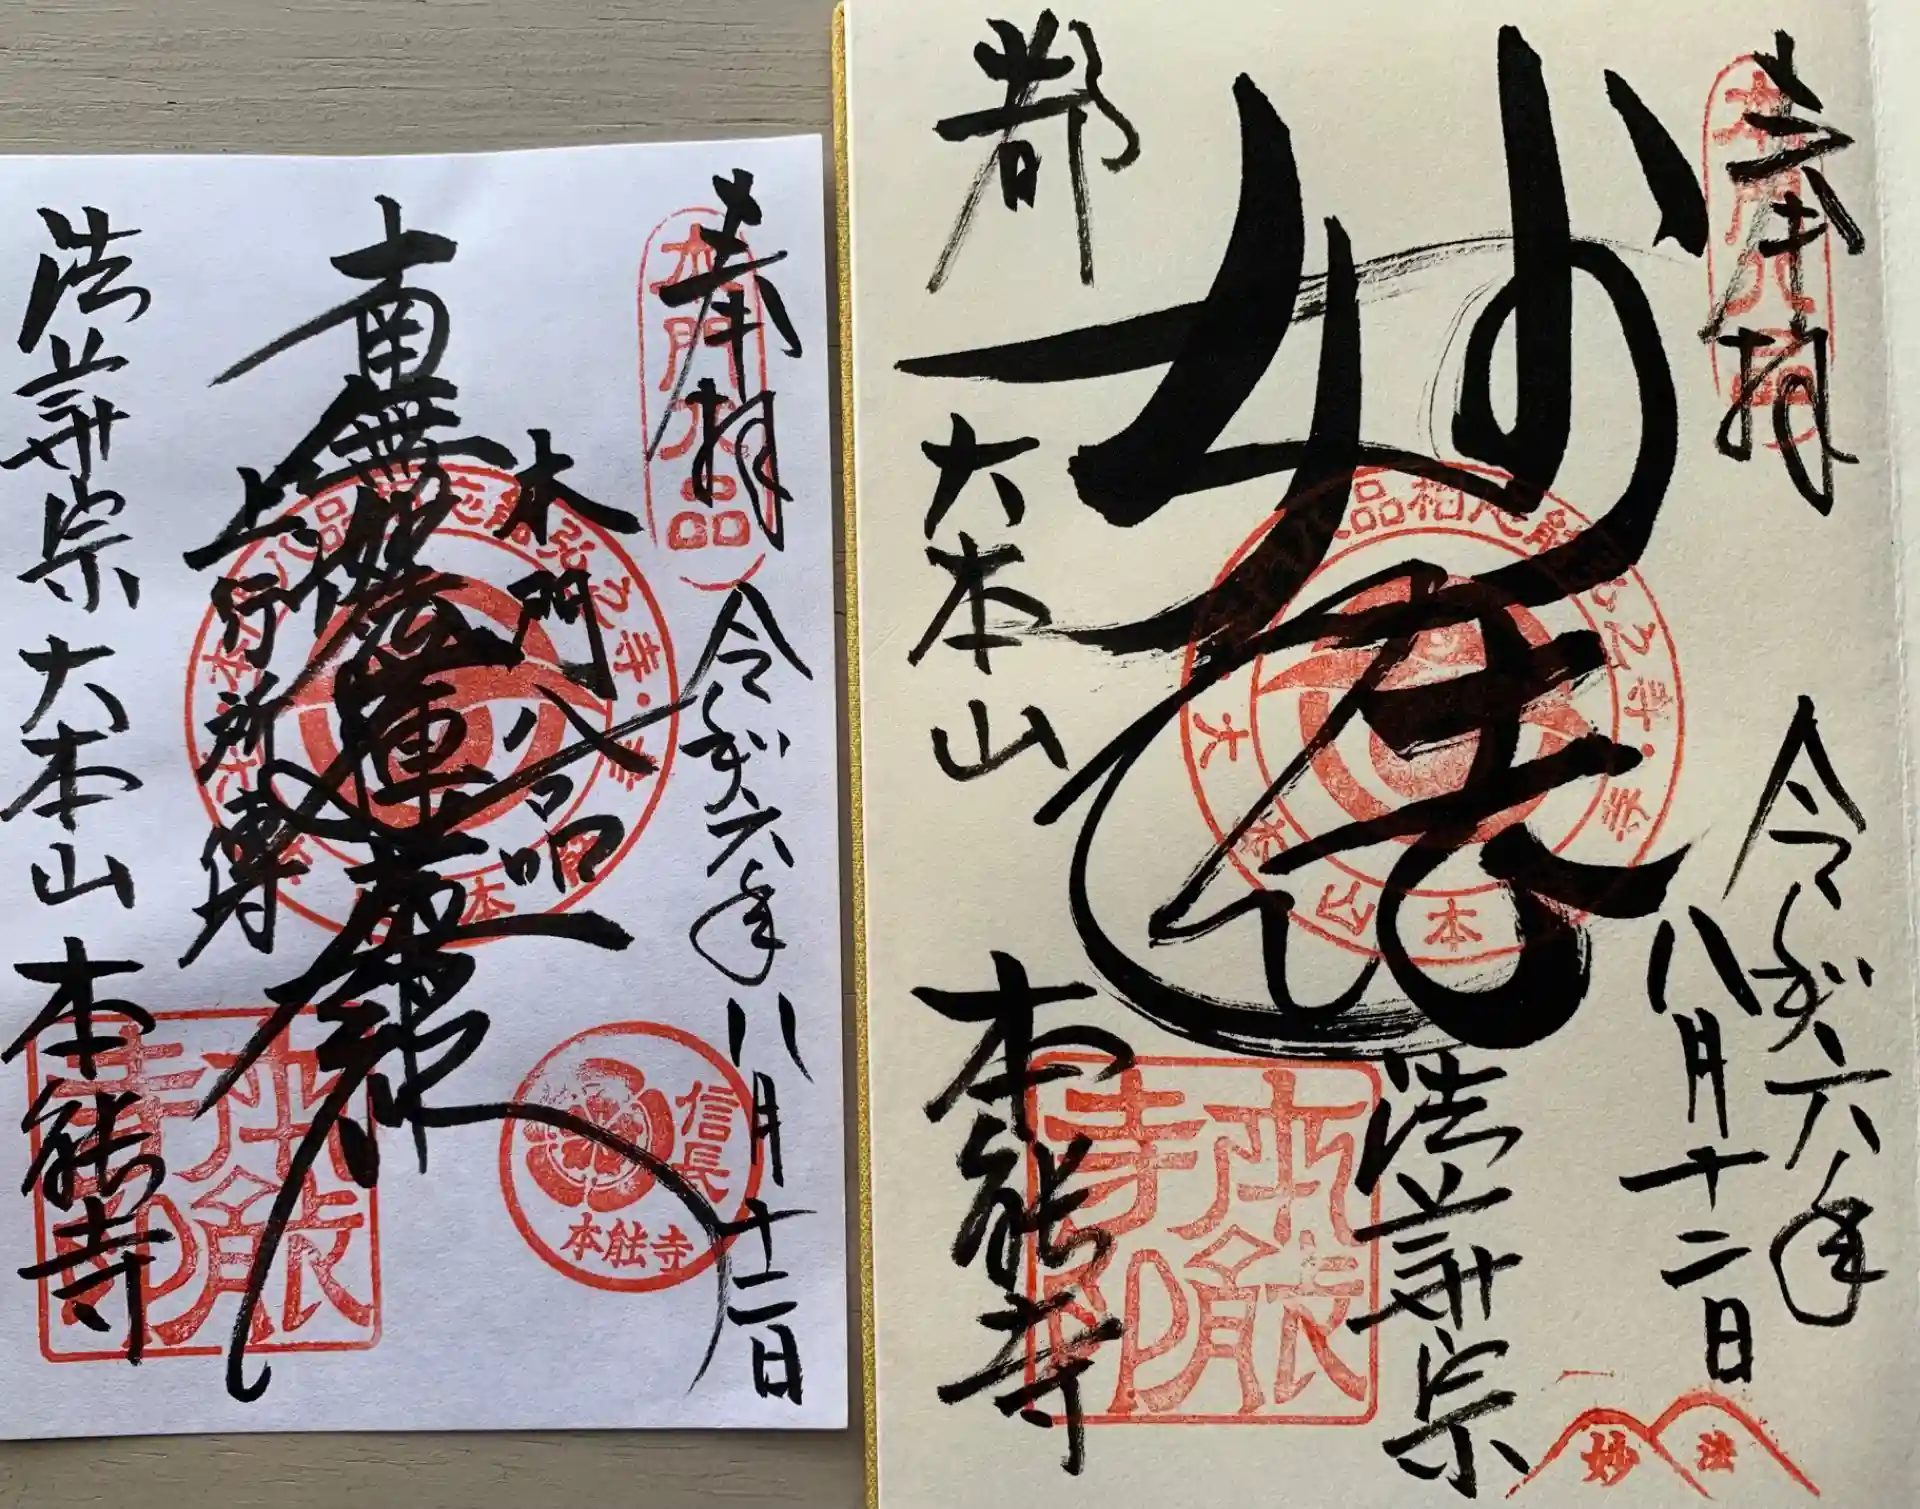 奉拝
令和六年八月十二日
本門八品
本門八品
南無妙法蓮華経
上行所傳
法華宗大本山本能寺
信長
本能寺
本能寺印
奉拝
令和六年
八月十二日
本門八品
妙
法華宗
都
大本山
本能寺
本能寺印
妙
法